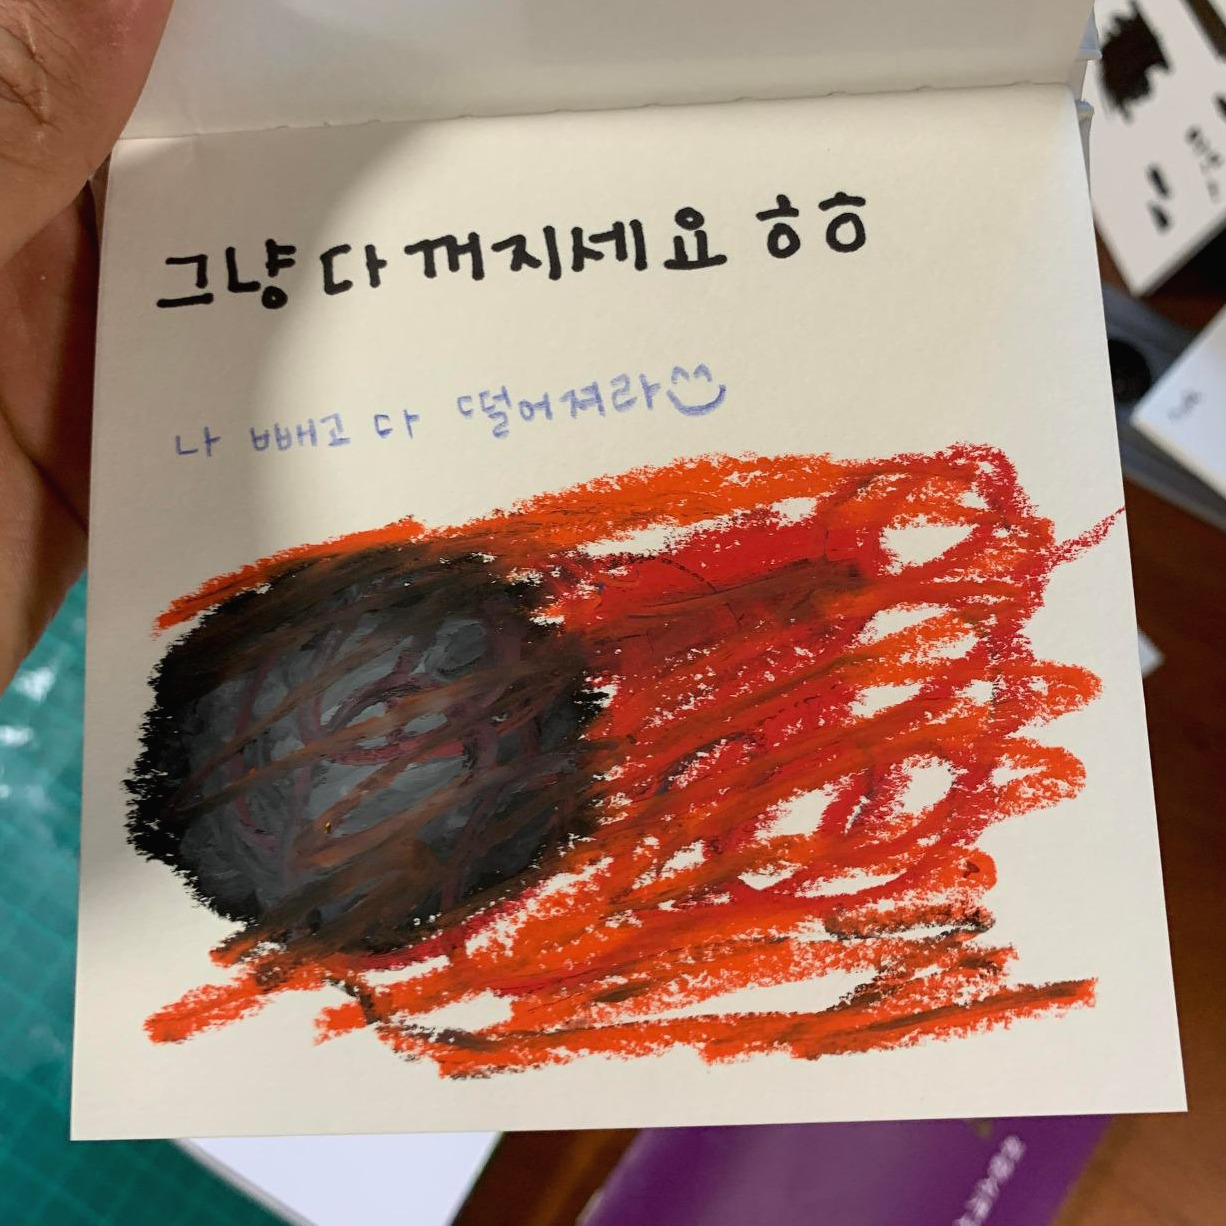 그냥 다 꺼지세요 ㅎㅎ
나 빼고 다 떨어져라